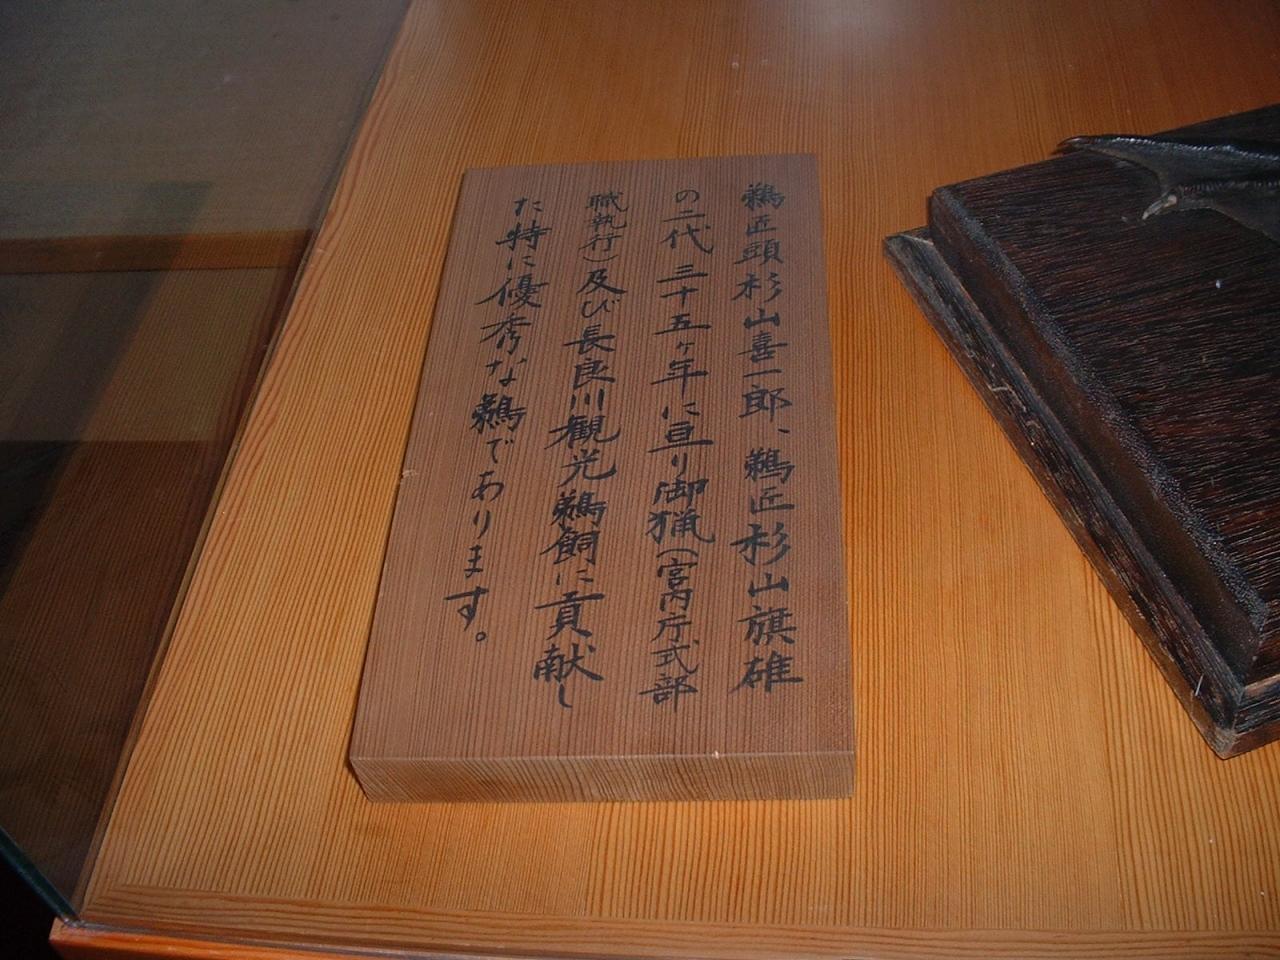 鵜匠頭杉山喜一郎、鵜匠杉山旗雄
の二代三十五ヶ年に亘り御猟(宮内庁式部
職執行)及び長良川観光鵜飼に貢献し
た特に優秀な鵜であります。